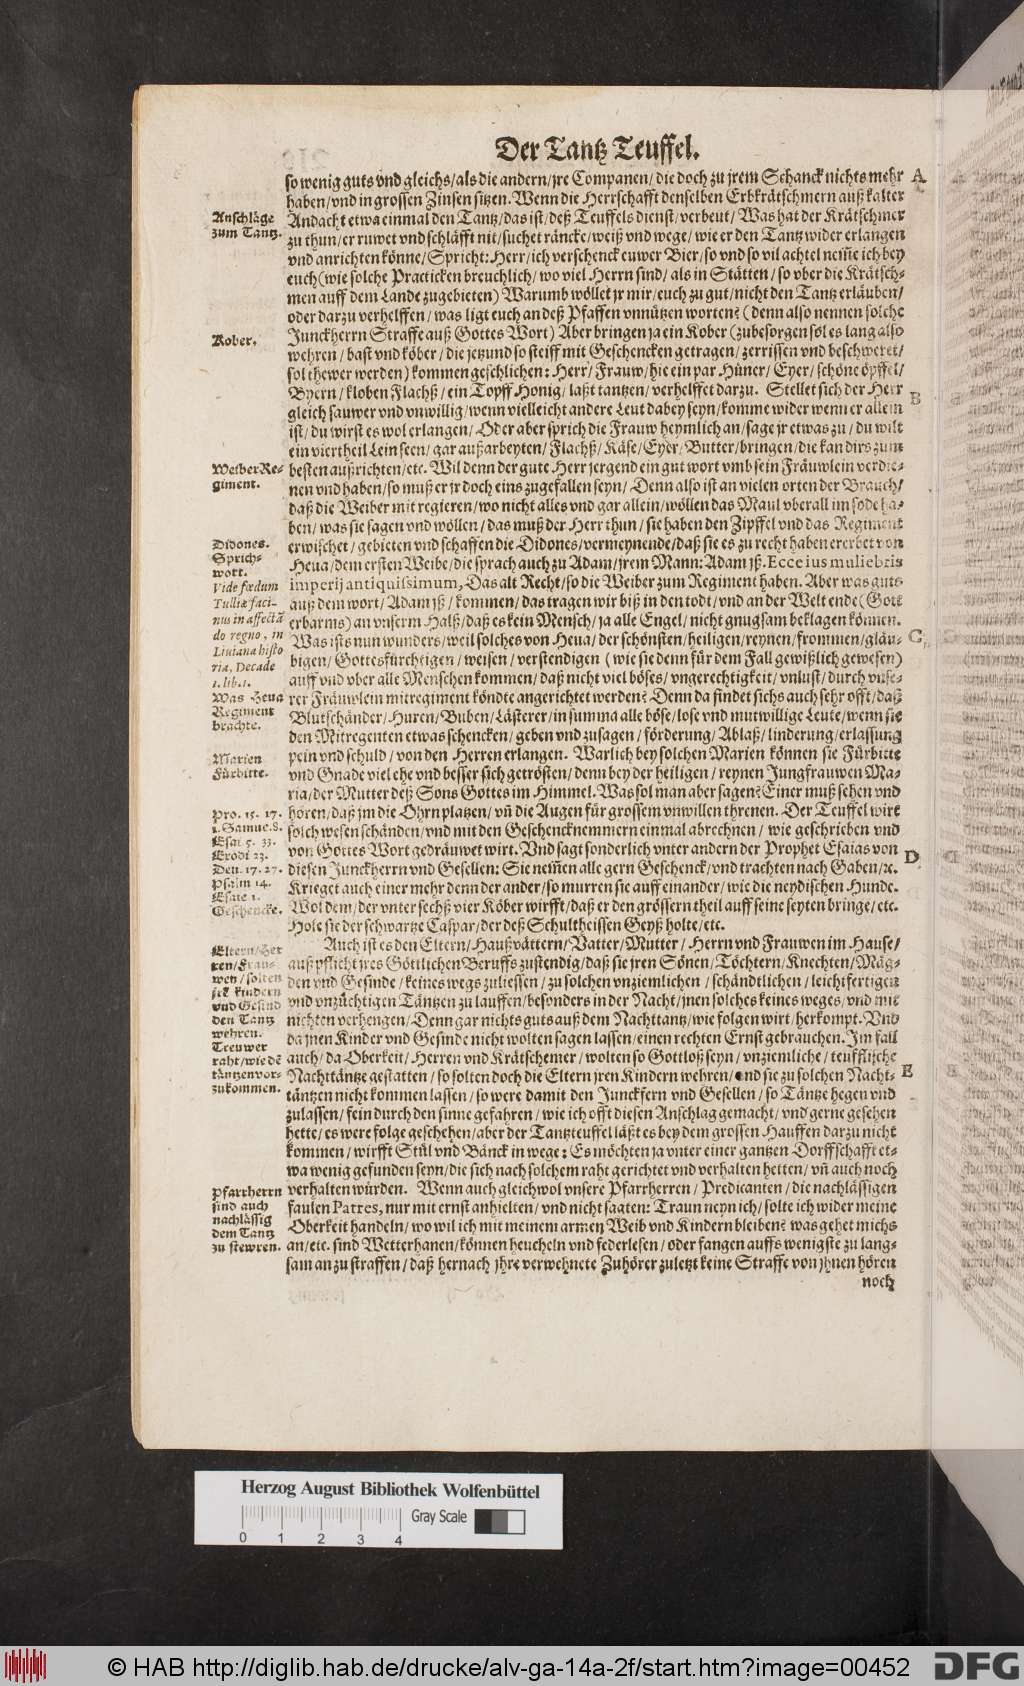 Der Tantz Teuffel.
so wenig guts vnd gleichs/als die andern/jre Companen/die doch zu jrem Schanck nichts mehr
haben/vnd in grossen Zinsen sitzen. Wenn die Herrschafft denselben Erbkrätschmern auß kalter
Andacht etwa einmal den Tantz/das ist/deß Teuffels dienst/verbeut/Was hat der Krätschmer
zu thun/er ruwet vnd schläfft nit/suchet räncke/weiß vnd wege/wie er den Tantz wider erlangen
vnd anrichten könne/Spricht: Herr/ich verschenck euwer Bier/so vnd so vil achtel nem̃e ich bey
euch(wie solche Practicken breuchlich/wo viel Herrn sind/als in Stätten/so vber die Krätsch-
men auff dem Lande zugebieten) Warumb wöllet jr mir/euch zu gut/nicht den Tantz erläuben/
oder darzu verhelffen/was ligt euch an deß Pfaffen vnnützen worten? (denn also nennen solche
Junckherrn Straffe auß Gottes Wort) Aber bringen ja ein Kober (zubesorgen sol es lang also
wehren/bast vnd köber/die jetzund so steiff mit Geschencken getragen/zerrissen vnd beschweret/
sol thewer werden) kommen geschlichen: Herr/Frauw/hie ein par Hüner/Eyer/schöne öpffel/
Byern/kloben Flachß/ein Topff Honig/laßt tantzen/verhelffet darzu. Stellet sich der Herr
gleich sauwer vnd vnwillig/wenn vielleicht andere Leut dabey seyn/komme wider wenn er allein
ist/du wirst es wol erlangen/Oder aber sprich die Frauw heymlich an/sage jr etwas zu/du wilt
ein viertheil Lein seen/gar außarbeyten/Flachß/Käse/Eyer/Butter/bringen/die kan dirs zum
besten außrichten/etc. Wil denn der gute Herr jergend ein gut wort vmb sein Fräuwlein verdie-
nen vnd haben/so muß er jr doch eins zugefallen seyn/Denn also ist an vielen orten der Brauch/
daß die Weiber mit regieren/wo nicht alles vnd gar allein/wöllen das Maul vberall im sode ha-
ben/was sie sagen vnd wöllen/das muß der Herr thun/sie haben den Zipffel vnd das Regiment
erwischet/gebieten vnd schaffen die Didones/vermeynende/daß sie es zu recht haben ererbet von
Heua/dem ersten Weibe/die sprach auch zu Adam/jrem Mann: Adam jß. Ecce ius muliebris
imperij antiquissimum, Das alt Recht/so die Weiber zum Regiment haben. Aber was guts
auß dem wort/Adam jß/kommen/das tragen wir biß in den todt/vnd an der Welt ende (Gott
erbarms) an vnserm Halß/daß es kein Mensch/ja alle Engel/nicht gnugsam beklagen können.
Was ists nun wunders/weil solches von Heua/der schönsten/heiligen/reynen/frommen/gläu-
bigen/Gottesfürchtigen/weisen/verstendigen (wie sie denn für dem Fall gewißlich gewesen)
auff vnd vber alle Menschen kommen/daß nicht viel böses/vngerechtigkeit/vnlust/durch vnse-
rer Fräuwlein mitregiment köndte angerichtet werden? Denn da findet sichs auch sehr offt/daß
Blutschänder/Huren/Buben/Lästerer/in summa alle böse/lose vnd mutwillige Leute/wenn sie
den Mitregenten etwas schencken/geben vnd zusagen/förderung/Ablaß/linderung/erlassung
pein vnd schuld/von den Herren erlangen. Warlich bey solchen Marien können sie Fürbitte
vnd Gnade viel ehe vnd besser sich getrösten/denn bey der heiligen/reynen Jungfrauwen Ma-
ria/der Mutter deß Sons Gottes im Himmel. Was sol man aber sagen? Einer muß sehen vnd
hören/daß jm die Ohrn platzen/vñ die Augen für grossem vnwillen threnen. Der Teuffel wirt
solch wesen schänden/vnd mit den Geschencknemmern einmal abrechnen/wie geschrieben vnd
von Gottes Wort gedräuwet wirt. Vnd sagt sonderlich vnter andern der Prophet Esaias von
diesen Junckherrn vnd Gesellen: Sie nem̃en alle gern Geschenck/vnd trachten nach Gaben/ꝛc.
Krieget auch einer mehr denn der ander/so murren sie auff einander/wie die neydischen Hunde.
Wol dem/der vnter sechß vier Köber wirfft/daß er den grössern theil auff seine seyten bringe/etc.
Hole sie der schwartze Caspar/der deß Schultheissen Geyß holte/etc.
Auch ist es den Eltern/Haußvättern/Vatter/Mutter/Herrn vnd Frauwen im Hause/
auß pflicht jres Göttlichen Beruffs zustendig/daß sie jren Sönen/Töchtern/Knechten/Mäg-
den vnd Gesinde/keines wegs zuliessen/zu solchen vnziemlichen/schändtlichen/leichtfertigen
vnd vnzüchtigen Täntzen zu lauffen/besonders in der Nacht/jnen solches keines weges/vnd mit
nichten verhengen/Denn gar nichts guts auß dem Nachttantz/wie folgen wirt/herkompt. Vnd
da jnen Kinder vnd Gesinde nicht wolten sagen lassen/einen rechten Ernst gebrauchen. Im fall
auch/da Oberkeit/Herren vnd Krätschemer/wolten so Gottloß seyn/vnziemliche/teufflische
Nachttäntze gestatten/so solten doch die Eltern jren Kindern wehren/vnd sie zu solchen Nacht-
täntzen nicht kommen lassen/so were damit den Junckfern vnd Gesellen/so Täntze hegen vnd
zulassen/fein durch den sinne gefahren/wie ich offt diesen Anschlag gemacht/vnd gerne gesehen
hette/es were folge geschehen/aber der Tantzteuffel läßt es bey dem grossen Hauffen darzu nicht
kommen/wirfft Stül vnd Bänck in wege: Es möchten ja vnter einer gantzen Dorffschafft et-
wa wenig gefunden seyn/die sich nach solchem raht gerichtet vnd verhalten hetten/vñ auch noch
verhalten würden. Wenn auch gleichwol vnsere Pfarrherren/Predicanten/die nachlässigen
faulen Patres, nur mit ernst anhielten/vnd nicht sagten: Traun neyn ich/solte ich wider meine
Oberkeit handeln/wo wil ich mit meinem armen Weib vnd Kindern bleiben? was gehet michs
an/etc. sind Wetterhanen/können heucheln vnd federlesen/oder fangen auffs wenigste zu lang-
sam an zu straffen/daß hernach jhre verwehnete Zuhörer zuletzt keine Straffe von jhnen hören
noch
Anschläge
zum Tantz.
Kober.
Weiber Re-
giment.
Didones.
Sprich-
wort.
Vide fœdum
Tulliæ faci-
nus in affectā
do regno, in
Liuiana histo
ria, Decade
1. lib. 1.
Was Heua
Regiment
brachte.
Marien
Fürbitte.
Pro. 15. 17.
1. Samue. 8.
Esai 5. 33.
Exodi 23.
Deu. 17. 27.
Psalm 14.
Esaie 1.
Geschencke.
Eltern/Her
ren/Frau-
wen/solten
jrē kindern
vnd Gesind
den Tantz
wehren.
Treuwer
raht/wie dē
täntzen vor-
zukommen.
Pfarrherrn
sind auch
nachlässig
dem Tantz
zu stewren.
A
B
C
D
E
Herzog August Bibliothek Wolfenbüttel
Gray Scale
0 1 2 3 4
© HAB http://diglib.hab.de/drucke/alv-ga-14a-2f/start.htm?image=00452
DFG